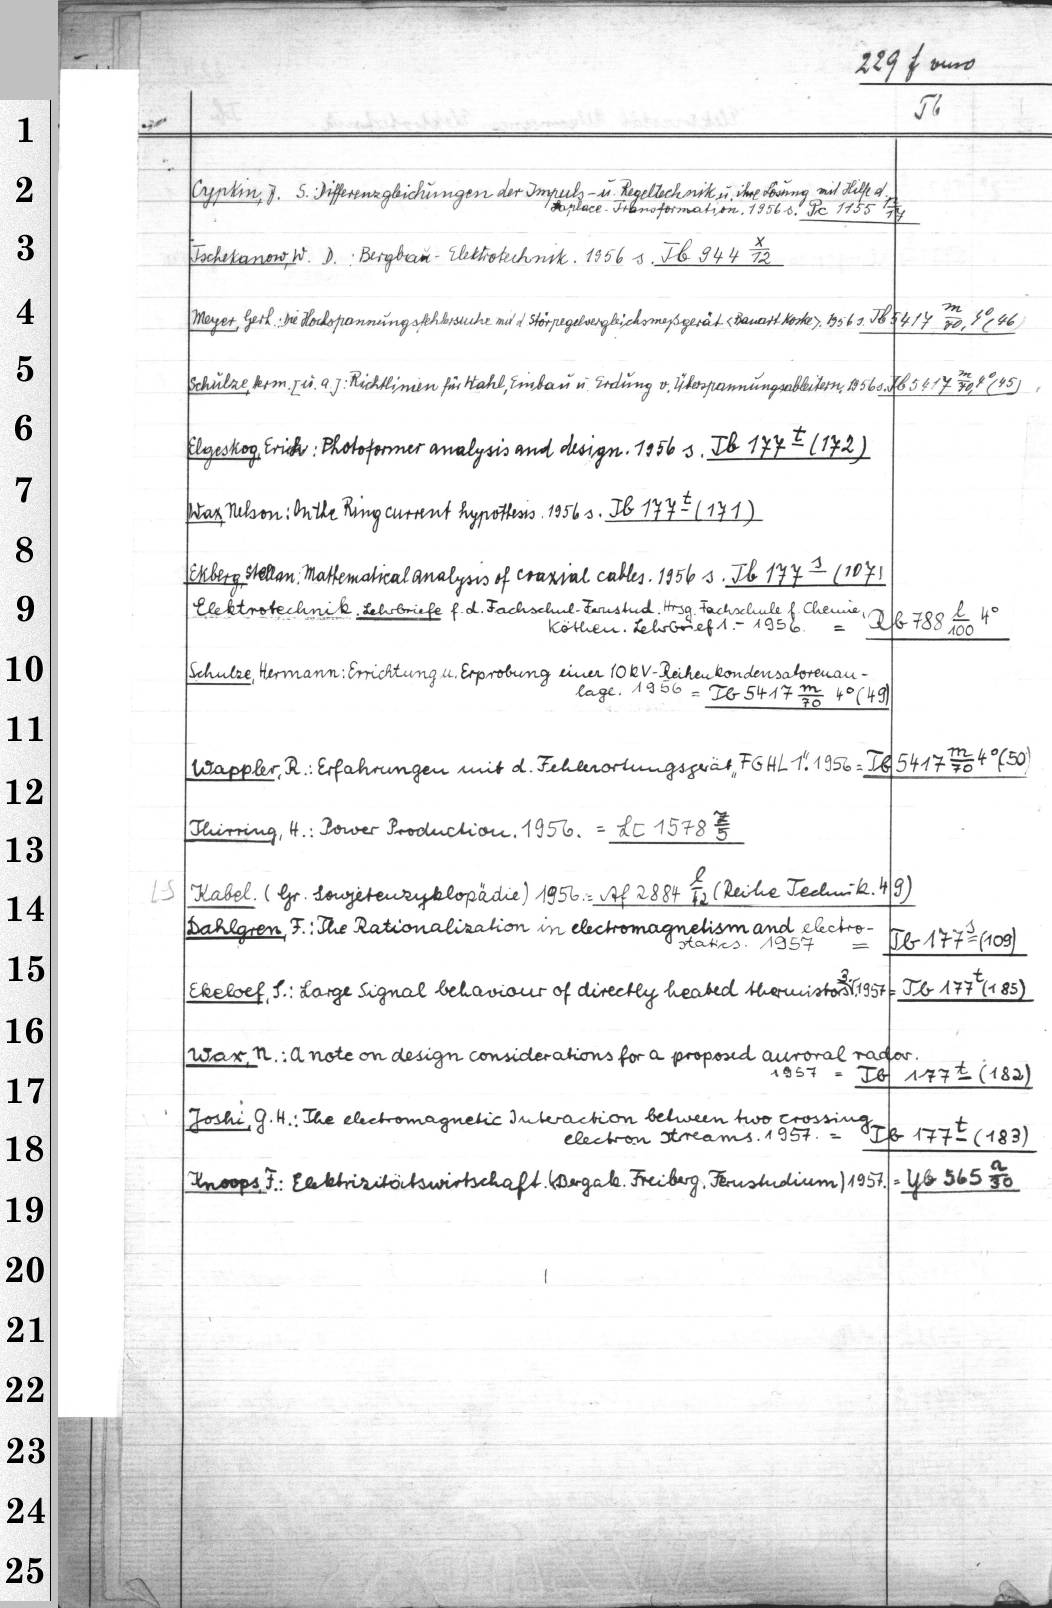 229 f verso
Tb
1
2
3
4
5
6
7
8
9
10
11
12
13
14
15
16
17
18
19
20
21
22
23
24
25
Cypkin, J. S.: Differenzgleichungen der Impuls- u. Regeltechnik u. ihre Lösung mit Hilfe d.
Laplace-Transformation. 1956 s. Pc 1155
Tschekanow, W. D.: Bergbau-Elektrotechnik. 1956 s. Tb 944 x/12
Meyer, Gerh.: Die Hochspannungsfehlersuche mit d Störpegelvergleichsmeßgerät <Bauart Koske>. 1956 s. Tb 5417 m/70, 4° (46)
Schulze, Herm. [u. a.]: Richtlinien für Wahl, Einbau u. Erdung v. Überspannungsableitern. 1956 s. Tb 5417 m/70, 4° (45)
Elgeskog, Erich: Photoformer analysis and design. 1956 s. Tb 177 t (172)
Wax, Nelson: On the Ring current hypothesis. 1956 s. Tb 177 t (171)
Ekberg, Stellan: Mathematical analysis of coaxial cables. 1956 s. Tb 177 s (107)
Elektrotechnik. Lehrbriefe f. d. Fachschul-Fernstud. Hrsg. Fachschule f. Chemie,
Köthen. Lehrbrief 1.- 1956. = Rb 788 l/100 4°
Schulze, Hermann: Errichtung u. Erprobung einer 10 kV-Reihenkondensatorenan-
lage. 1956 = Tb 5417 m/70 4° (49)
Wappler, R.: Erfahrungen mit d. Fehlerortungsgerät „FGHL 1". 1956 = Tb 5417 m/70 4° (50)
Thirring, H.: Power Production. 1956. = Lc 1578 z/5
Kabel. (Gr. Sowjetenzyklopädie) 1956. = Af 2884 l/12 (Reihe Technik. 49)
Dahlgren, F.: The Rationalization in electromagnetism and electro-
statics. 1957 = Tb 177 s (109)
Ekeloef, S.: Large Signal behaviour of directly heated thermistors. 1957 = Tb 177 t (185)
Wax, N.: A note on design considerations for a proposed auroral radar.
1957 = Tb 177 t (182)
Joshi, G. H.: The electromagnetic Interaction between two crossing
electron streams. 1957. = Tb 177 t (183)
Knoops, F.: Elektrizitätswirtschaft. (Bergak. Freiberg, Fernstudium) 1957. = Yb 565 a/30